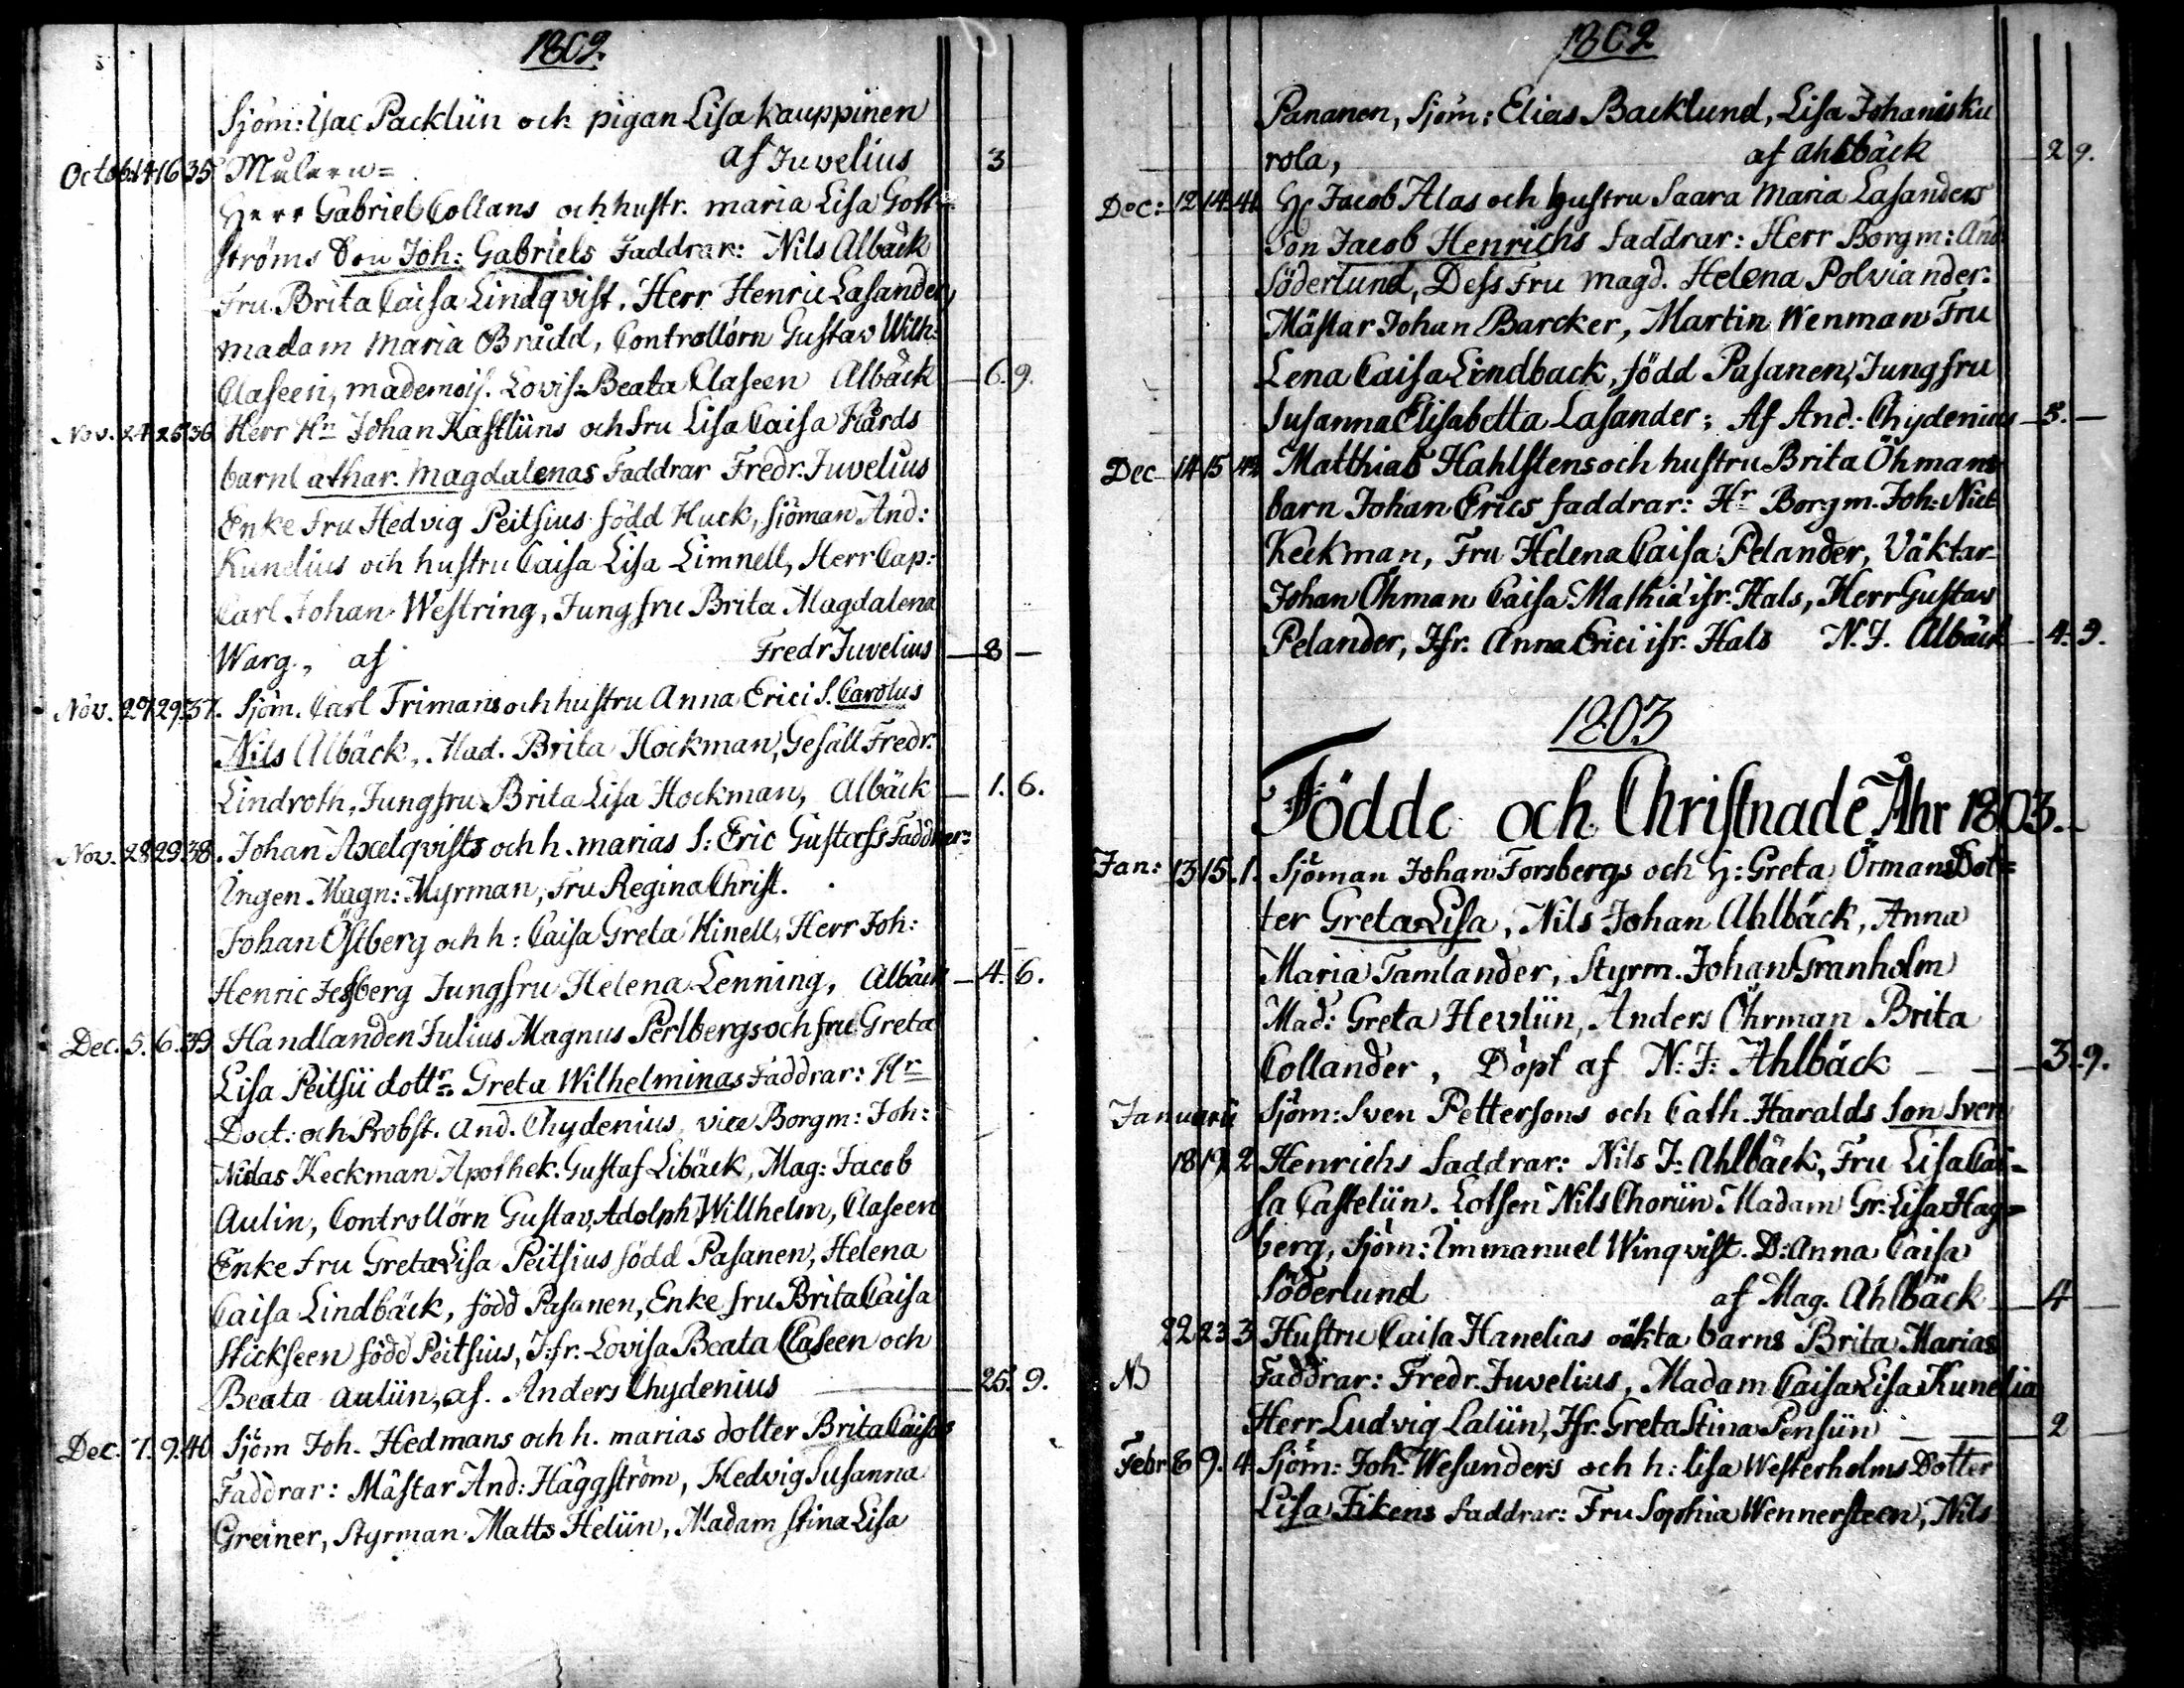 1802.
Sjöm: Isac Packlün och pigan Lisa Kauppinen
af Juvelius 3
Octob: 14 16 35 Mulern=
Herr Gabriel Collans och hustr. maria Lisa Gott-
ströms Son Joh: Gabriels Faddrar: Nils Albäck
Fru. Brita Caisa Lindqvist. Herr Henric Lasander,
madam Maria Brådd, Controllörn Gustav Wilh:
Claseen, mademois. Lovis: Beata Claseen Albäck 6. 9.
Nov. 24 25 36 Herr Hn Johan Kastlüns och fru Lisa Caisa Hårds
barn Cathar. Magdalenas Faddrar Fredr. Juvelius
Enke fru Hedvig Peitsius född Huck, sjöman And:
Kunelius och hustru Caisa Lisa Limnell, Herr Cap:
Carl Johan Westring, Jungfru Brita Magdalena
Warg., af Fredr Juvelius 8 —
Nov. 27 29 37. Sjöm. Carl Frimans och hustru Anna Erici S. Carolus
Nils Albäck, Mad. Brita Hockman, Gesäll Fredr.
Lindroth, Jungfru Brita Lisa Hockman, Albäck 1. 6.
Nov. 28 29 38. Johan Axelqvists och h. marias S: Eric Gustafs Faddrar:
Ingen. Magn: Myrman, Fru Regina Christ.
Johan Östberg och h: Caisa Greta Hinell, Herr Joh:
Henric Jesberg Jungfru Helena Lenning, Albäck 4. 6.
Dec. 5. 6. 39 Handlanden Julius Magnus Perlbergs och fru Greta
Lisa Peitsii dottr Greta Wilhelminas Faddrar: Hr
Doct: och Probst. And. Chydenius, vice Borgm: Joh:
Niclas Keckman Apothek. Gustaf Libäck, Mag: Jacob
Aulin, Controllörn Gustav, Adolph, Willhelm, Claseen
Enke fru Greta Lisa Peitsius född Pasanen, Helena
Caisa Lindbäck, född Pasanen, Enke fru Brita Caisa
Stickseen född Peitsius, J:fr. Lovisa Beata Claseen och
Beata Aulün, af. Anders Chydenius 25. 9.
Dec. 7. 9. 40 Sjöm Joh. Hedmans och h. marias dotter Brita Caisas
Faddrar: Mästar And: Häggström, Hedvig Susanna
Greiner, Styrman Matts Helün, Madam Stina Lisa
1802
Pananen, Sjöm: Elias Backlund, Lisa Johanis ku
rola, af Ahlbäck 2 9.
Dec: 12 14 41 H Jacob Alas och hustru Saara Maria Lasanders
Son Jacob Henrichs faddrar: Herr Borgm: And
Söderlund, Dess Fru Magd. Helena Polviander:
Mästar Johan Barcker, Martin Wenman Fru
Lena Caisa Lindback, född Pasanen, Jungfru
Susanna Elisabetta Lasander; Af And: Chydenius 5. —
Dec 14 15 42 Matthias Hahlstens och hustru Brita Öhmans
barn Johan Erics faddrar: Hr Borgm. Joh: Nicl
Keckman, Fru Helena Caisa Pelander, Väktar
Johan Öhman Caisa Mathiæ ifr. Hals, Herr Gustav
Pelander, Jfr. Anna Erici ifr. Hals N. J. Albäck 4. 9.
1803
Födde och Christnade Åhr 1803.
Jan: 13 15. 1. Sjöman Johan Forsbergs och H: Greta Örmans Dot=
ter Greta Lisa, Nils Johan Ahlbäck, Anna
Maria Tamlander, Styrm. Johan Granholm
Mad: Greta Hevlün, Anders Öhrman Brita
Collander, Döpt af N: J: Ahlbäck 3. 9.
Januarii Sjöm: Sven Pettersons och Cath. Haralds Son Sven
18 19 2 Henrichs faddrar: Nils J: Ahlbäck, Fru Lisa Cai=
sa Castelün. Lotsen Nils Chorün Madam Gr: Lisa Hag=
berg, Sjöm: Immanuel Winqvist. D: Anna Caisa
Söderlund af Mag. Ahlbäck 4 —
22 23 3 Hustru Caisa Hanelias oäkta barns Brita Marias
NB Faddrar: Fredr. Juvelius, Madam Caisa Lisa Kunelia
Herr Ludvig Lalün, Jfr. Greta Stina Pensün 2
Febr 8 9. 4 Sjöm: Joh: Wesanders och h: Lisa Westerholms Dotter
Lisa Fikens faddrar: Fru Sophia Wennersteen, Nils